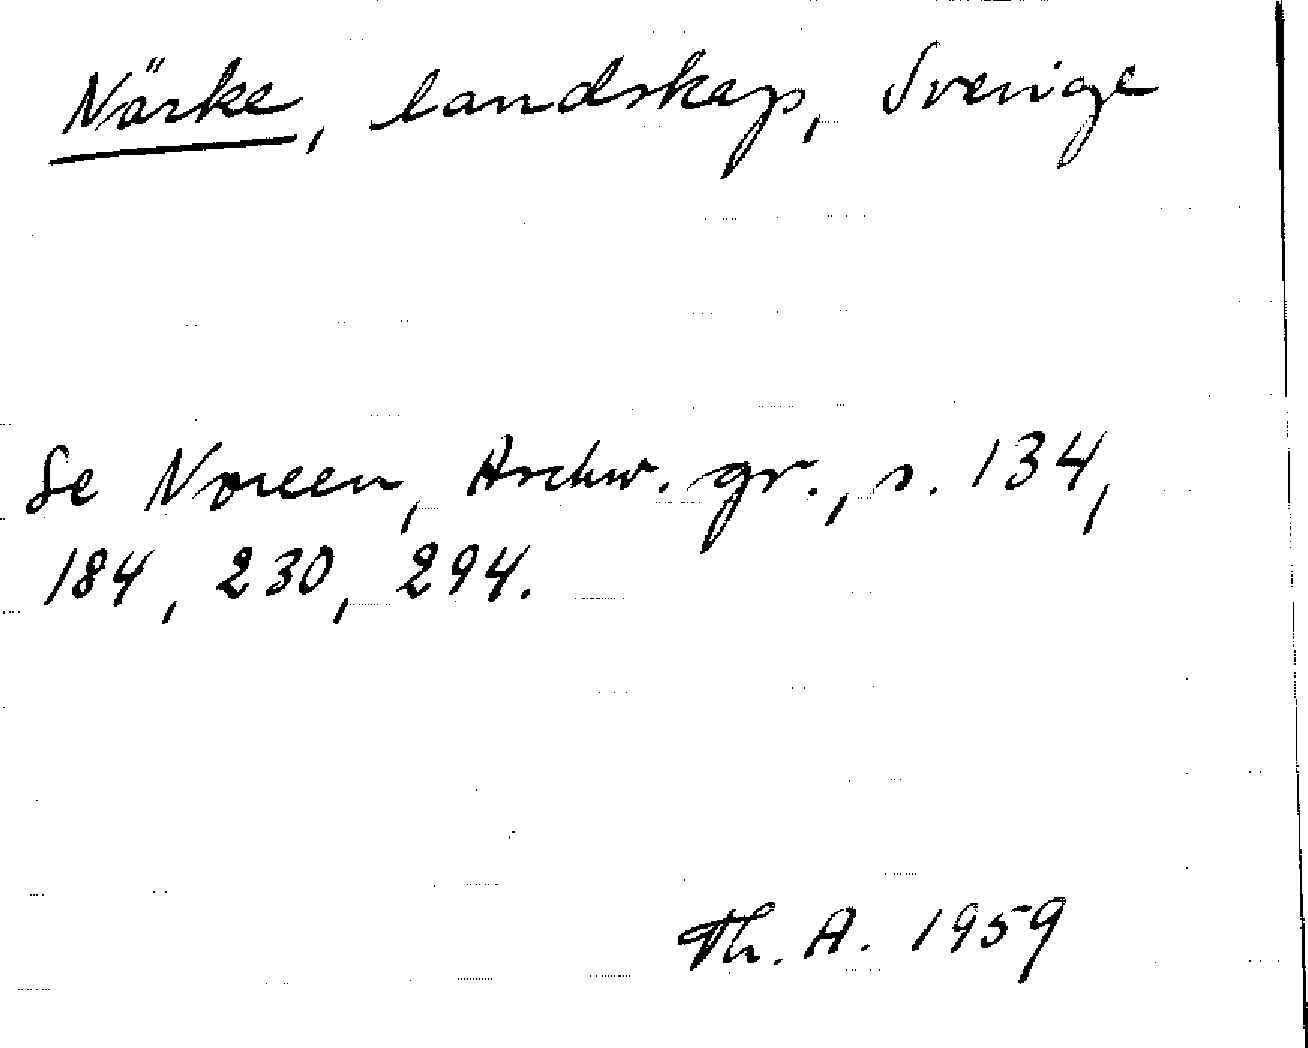 Närke, landskap, Sverige
Se Noreen, Aschw. gr., s. 134,
184, 230, 294.
Th. A. 1959